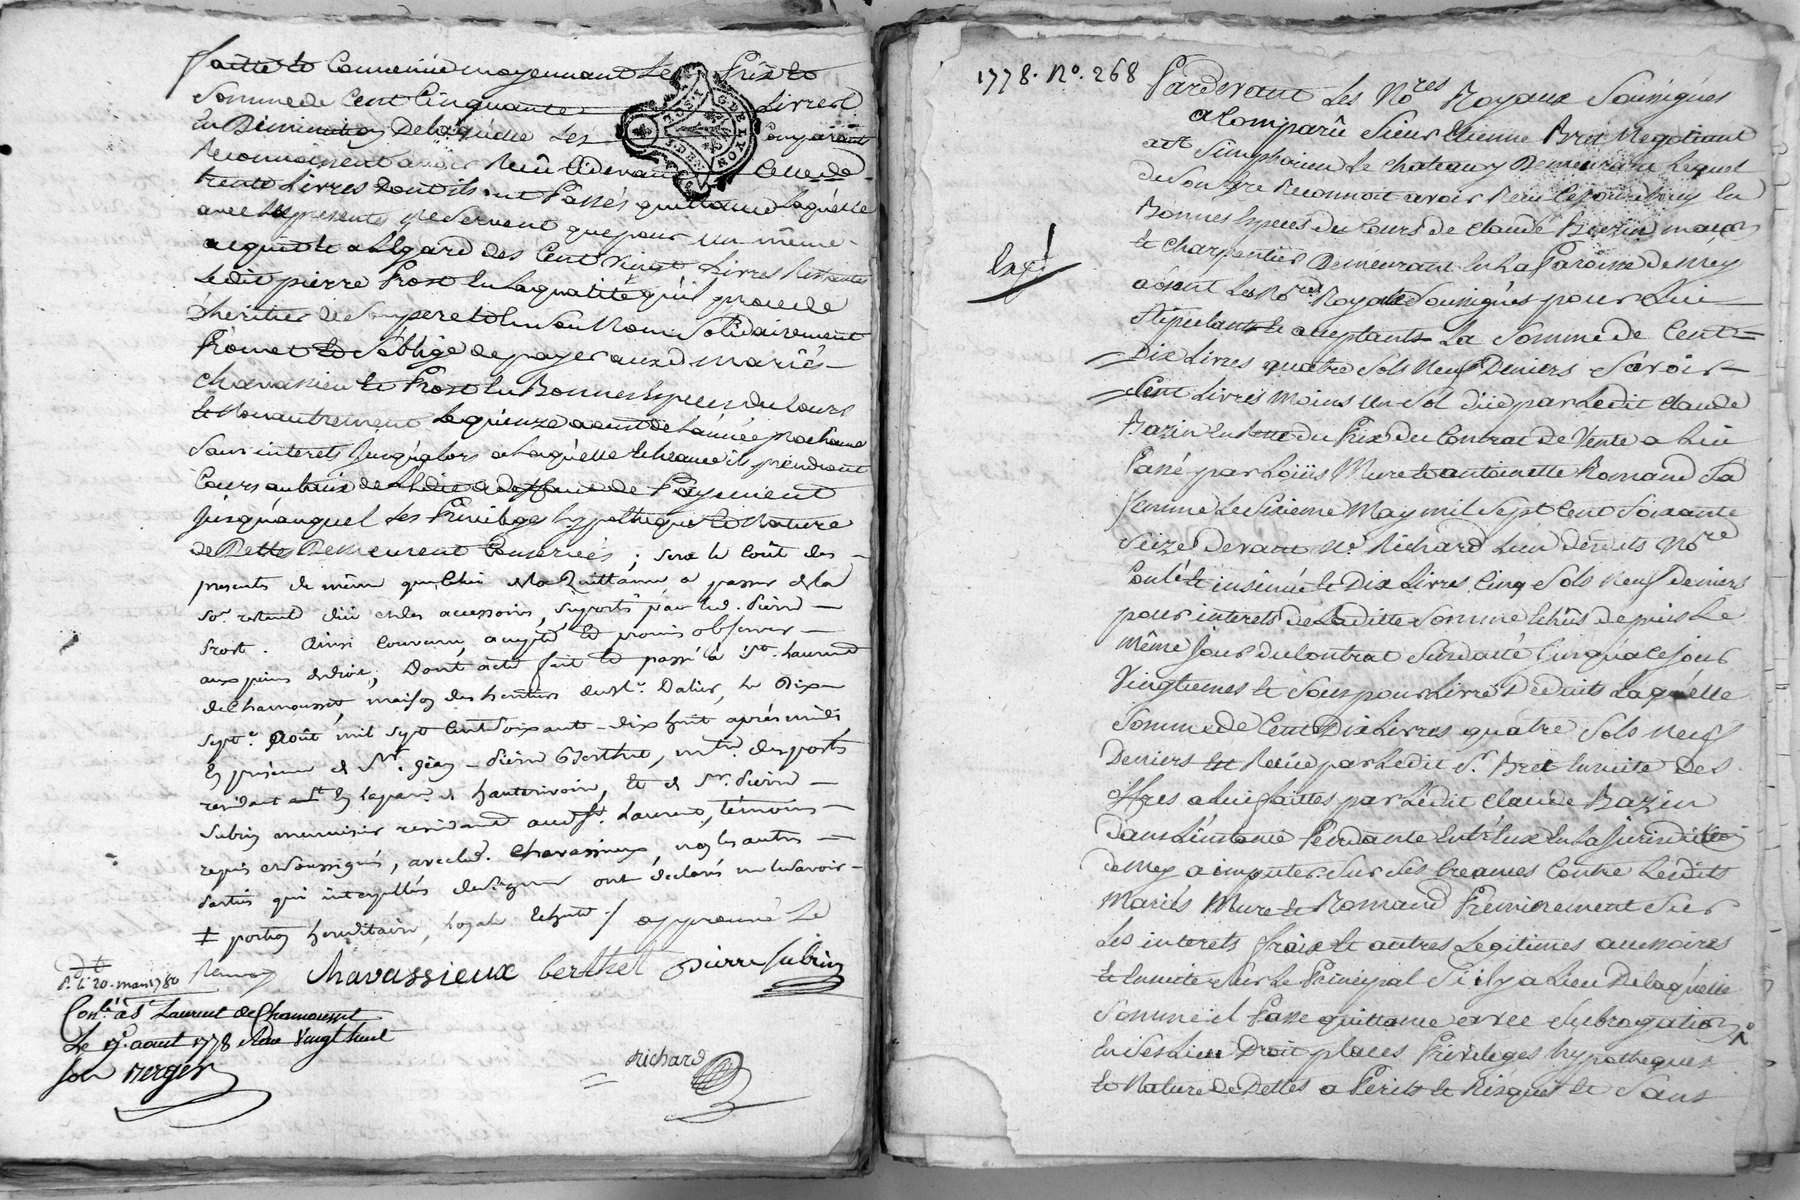 faitte et Convenüe moyennant Le Prix et
Somme de Cent Cinquante Livres
En Diminution De laquelle Les Comparants
Reconnoissent avoir Reçu Cidevant Celle de
trente Livres dont ils ont Passés quittance Laquelle
avec les presentes ne Servent que pour un même
acquit et a L'Egard des Cent vingt Livres Restantes
Ledit pierre Frost En La qualité qu'il procede
D'heritier de Son pere et En Son Nom Solidairement
Promet et S'oblige de payer auxd mariés
chavassieu et Frost En Bonnes Especes du Cours
et Non autrement Le quinze aoust de L'année prochaine
Sans interets Jusqu'alors a Laquelle Echeance ils prendront
Cours au taux de L'Edit a deffaut de Payement
Jusqu'auquel Les Privileges hypotheques et Nature
de Dettes Demeurent Conservés ; sera le coût des
presentes de même que Celui de la Quittance a passer de la
So.e restant düe et des accessoires, supporté par led. Pierre
Frost. Ainsi Convenu, accepté et promis observer
aux peines de droit, Dont acte fait et passé à St. Laurend
de Chamousset, maison des heritiers du Sr. Dalier, le Dix
sept.e Août mil sept Cent Soixante dix huit après midi
En présence de Sr. Jean-Pierre Berthet, m.tre des ports
residant en la par.se de hauterivoire, et de Sr. Pierre
Subrin menuisier residand aud St. Laurend, témoins
requis et Soussignés, avec led. Chavassieux, non les autres
Parties qui interpellés de Signer ont declaré ne le savoir
‡ portion hereditaire, loyale Echute / approuvé Le
Renvoy Chavassieux berthet pierre subrin
d.t le 20. mars 1780
Con.lé a St Laurent de Chamousset
Le 17. aoust 1778 Reçu Vingt huit
sou Berger
Richard
1778. No. 268
Pardevant Les No.res Royaux Sousignés
a Comparû Sieur Etienne Bret Negotiant
a St Simphorien Le Chateau y Demeurant Lequel
de Son Gré Reconnoit avoir Recu Cejourdhuy En
Bonnes Especes du Cours de Claude Bazin maçon
et Charpentier Demeurant En La Paroisse de Mey
absent Les No.res Royaux Sousignés pour Lui
Stipulants et acceptants La Somme de Cent
Dix Livres quatre Sols Neuf Deniers Sâvoir
Cent Livres Moins Un Sol düe par Ledit Claude
Bazin En Reste du Prix du Contrat de Vente a Lui
Passé par Loüis Mure et antoinette Romand Sa
femme Le Sixieme May mil Sept Cent Soixante
Seize Devant Me. Richard L'un Desdits No.re
Conlé et insinué et Dix Livres Cinq Sols Neuf deniers
pour interets de Laditte Somme Echûs depuis Le
même Jour du Contrat Surdatté Jusqu'a Ce Jour
Vingtiemes et Sous pour Livre Deduits Laquelle
Somme de Cent Dix Livres quatre Sols Neuf
Deniers Est Reçüe par Ledit Sr. Bret Ensuite Des
offres a Lui faittes par Ledit Claude Bazin
dans L'instance Pendante Entr'Eux En La Jurisdiction
de Mey a imputer Sur Ses Creances Contre Lesdits
Mariés Mure et Romand Premierement Sur
Les interets fraix et autres Legitimes accessoires
et Ensuite Sur Le Principal S'il y a Lieu De laquelle
Somme il Passe quittance avec Subrogation
En Ses Lieu Droit places Privileges hypotheques
et Nature de Dettes a Perils et Risques et Sans